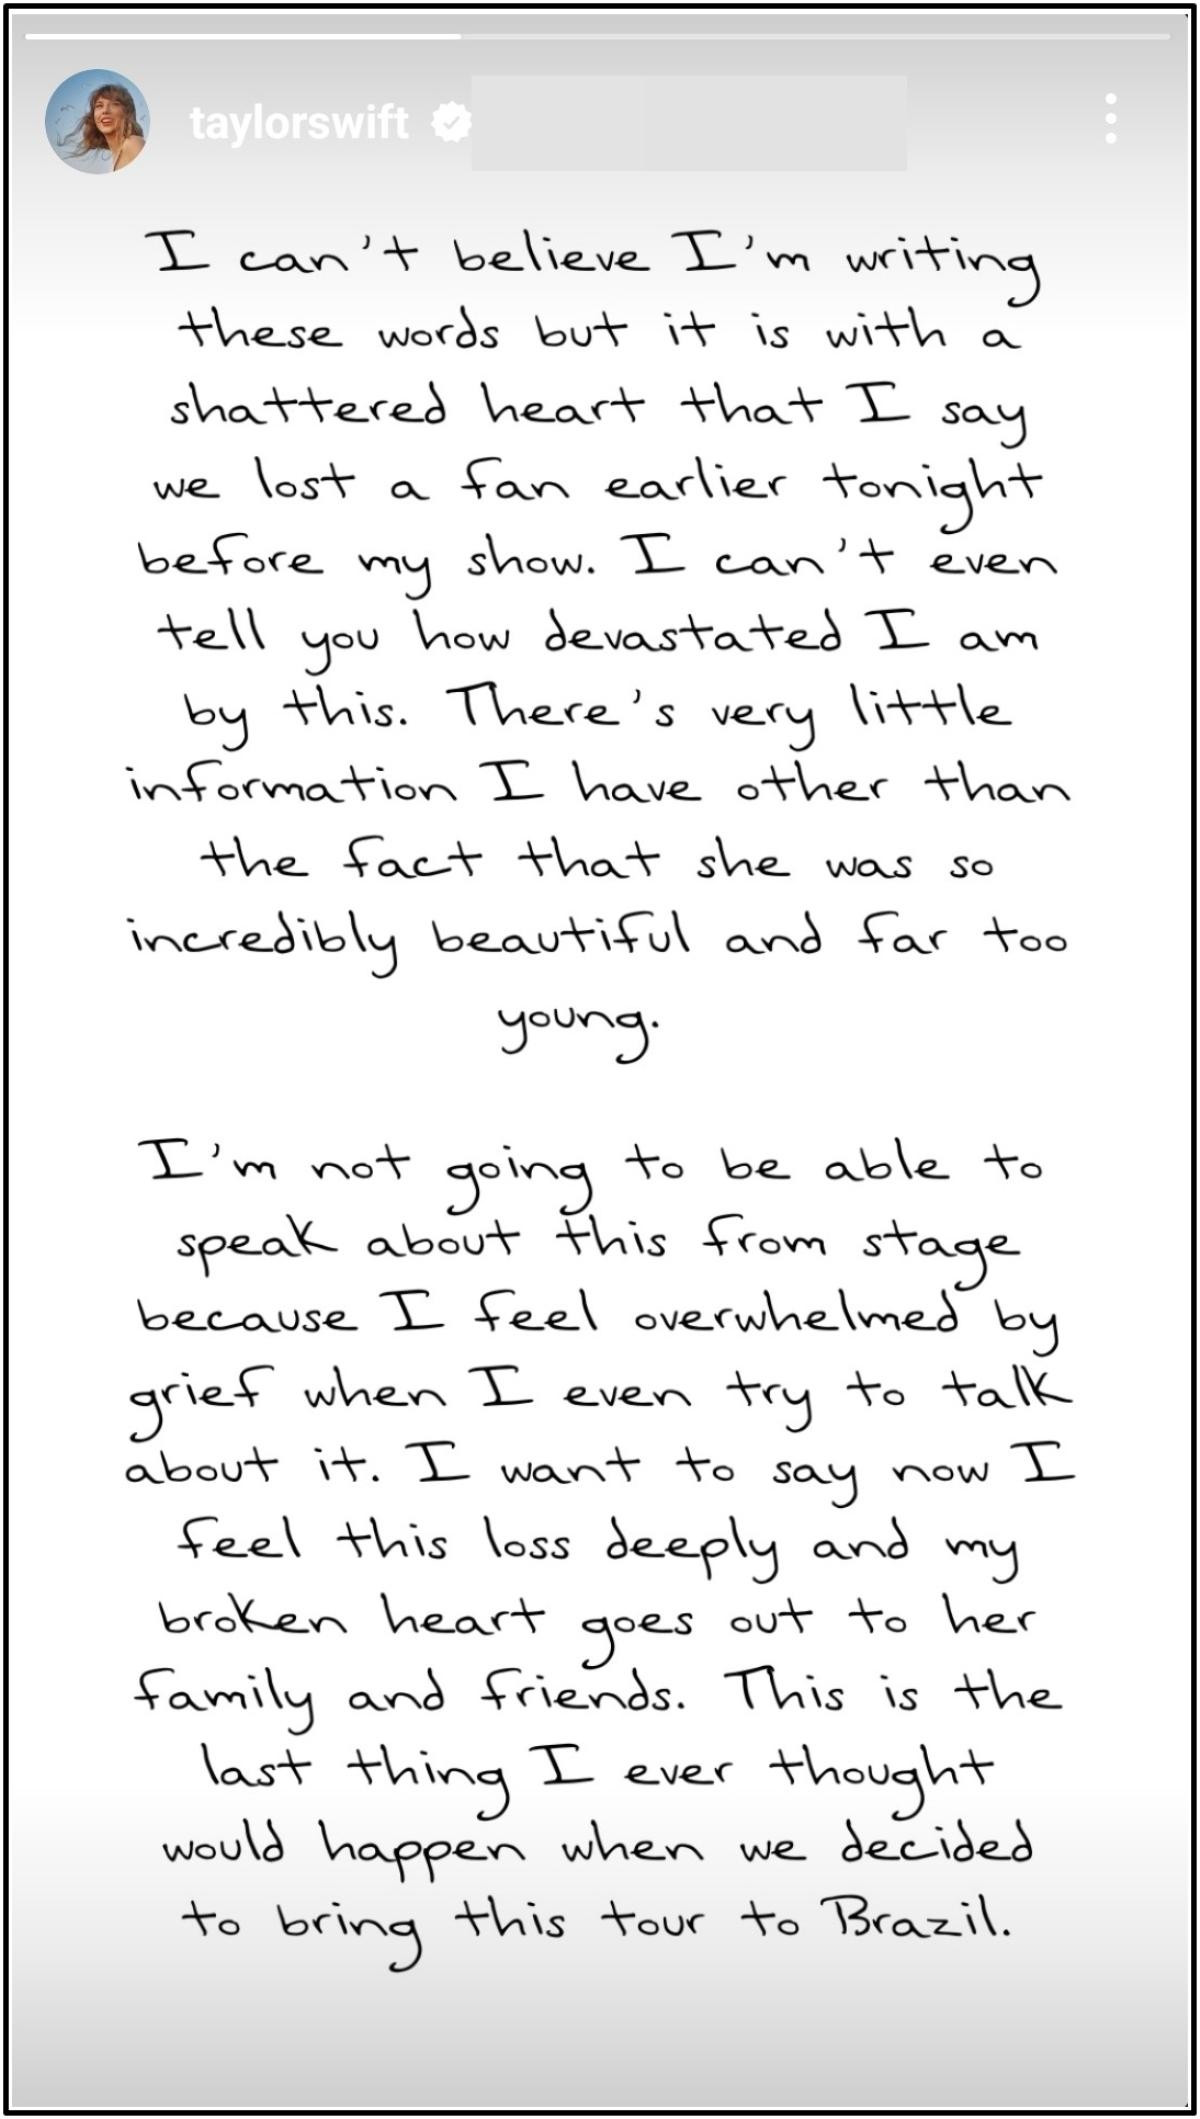 taylorswift
I can't believe I'm writing
these words but it is with a
shattered heart that I say
we lost a fan earlier tonight
before my show. I can't even
tell you how devastated I am
by this. There's very little
information I have other than
the fact that she was so
incredibly beautiful and far too
young.
I'm not going to be able to
speak about this from stage
because I feel overwhelmed by
grief when I even try to talk
about it. I want to say now I
feel this loss deeply and my
broken heart goes out to her
family and friends. This is the
last thing I ever thought
would happen when we decided
to bring this tour to Brazil.